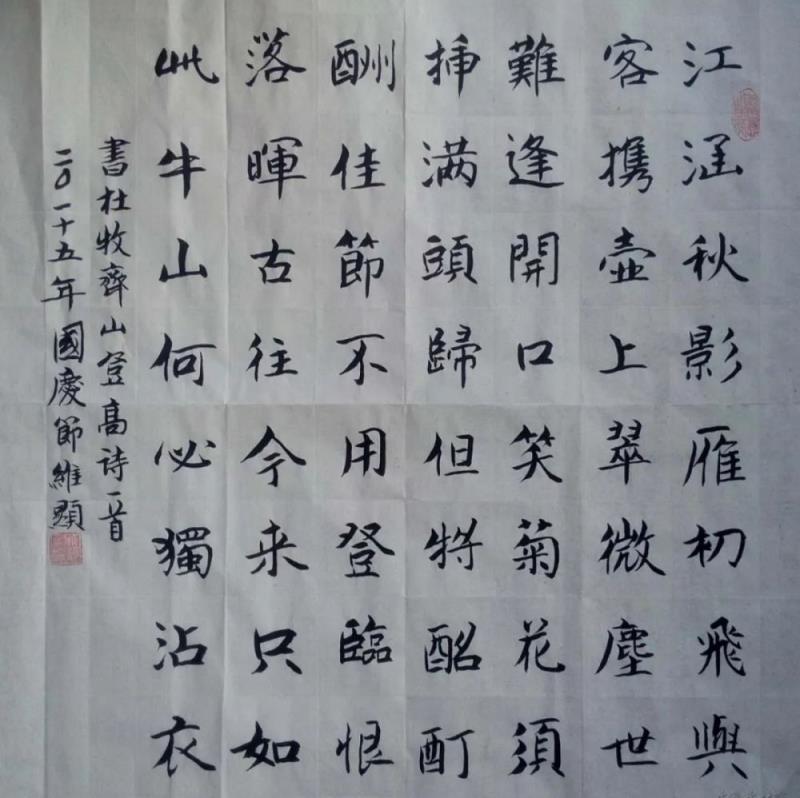 江涵秋影雁初飛與
客携壺上翠微塵世
難逢開口笑菊花須
插满頭歸但将酩酊
酬佳節不用登臨恨
落暉古往今来只如
此牛山何必獨沾衣
書杜牧齊山登高诗一首
二〇一十五年國慶節維顯